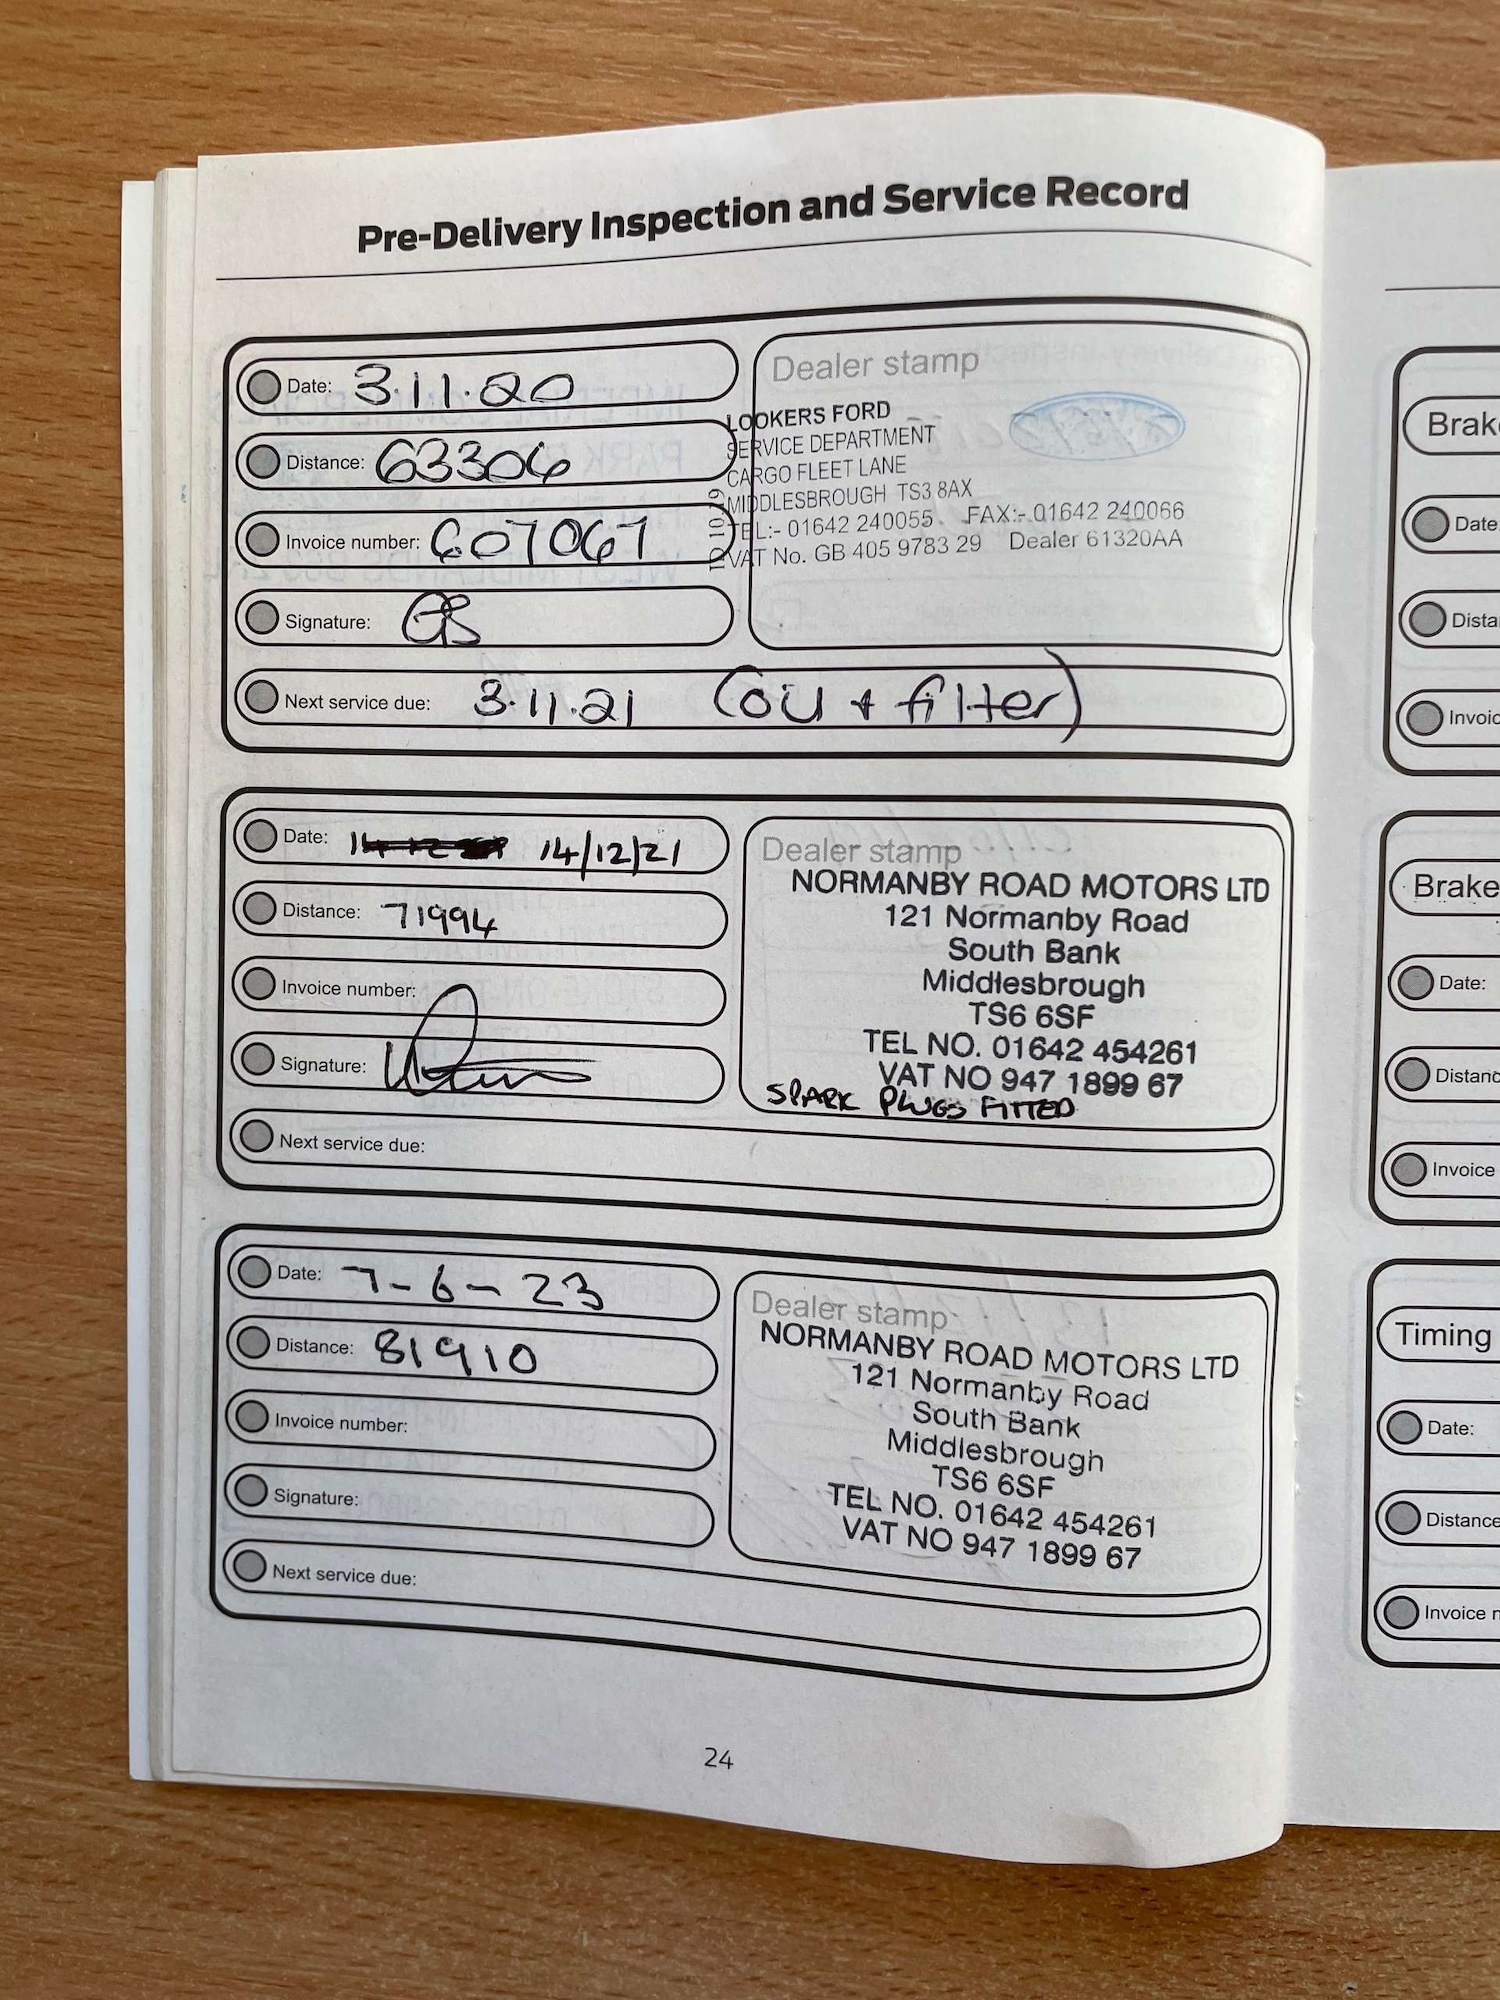 Pre-Delivery Inspection and Service Record
Date: 3.11.20
Distance: 63306
Invoice number: 607067
Signature: GS
Next service due: 3.11.21 (oil + filter)
Dealer stamp
LOOKERS FORD
SERVICE DEPARTMENT
CARGO FLEET LANE
MIDDLESBROUGH TS3 8AX
TEL:- 01642 240055 FAX:- 01642 240066
VAT No. GB 405 9783 29 Dealer 61320AA
Date: 14/12/21
Distance: 71994
Invoice number:
Signature:
Next service due:
Dealer stamp
NORMANBY ROAD MOTORS LTD
121 Normanby Road
South Bank
Middlesbrough
TS6 6SF
TEL NO. 01642 454261
VAT NO 947 1899 67
SPARK PLUGS FITTED
Date: 7-6-23
Distance: 81910
Invoice number:
Signature:
Next service due:
Dealer stamp
NORMANBY ROAD MOTORS LTD
121 Normanby Road
South Bank
Middlesbrough
TS6 6SF
TEL NO. 01642 454261
VAT NO 947 1899 67
24
Brake
Date
Dista
Invoic
Brake
Date:
Distanc
Invoice
Timing
Date:
Distance
Invoice n